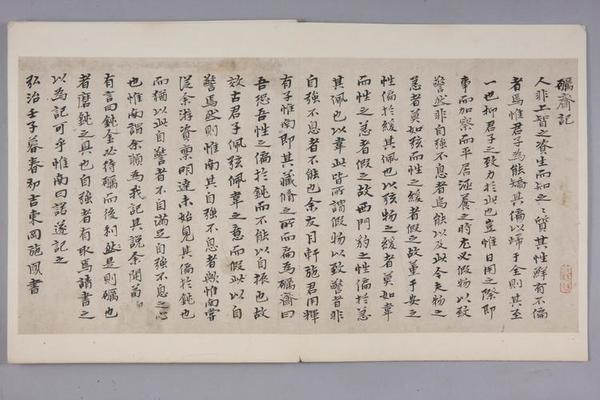 礪齋記
人非上智之資生而知之〻質其性鮮有不偏
者焉惟君子為能矯其偏以歸于全則其至
一也抑君子之致力於此也豈惟日用之際即
事而加察而平居涵養之時尤必假物以致
警然非自強不息者焉能以及此今夫物之
急者莫如弦而性之緩者假之故董于安之
性偏於緩其佩也以弦物之緩者莫如韋
而性之急者假之故西門豹之性偏於急
其佩也以韋此皆所謂假物以致警者非
自強不息者不能也余友月軒施君用輝
有子惟南即其藏脩之所而扁為礪齋曰
吾恐吾性之偏於鈍而不能以自振也故
效古君子佩弦佩韋之意而假此以自
警焉然則惟南其自強不息者歟惟南嘗
從余游資稟明達未始見其偏於鈍也
而猶以自警者不自滿足自強不息之心
也惟南謂余願為我記其說余聞荀
有言曰鈍金必待礪而後利然是則礪也
者磨鈍之具也自強者有取焉請書之
以為記可乎惟南曰諾遂記之
弘治壬子暮春初吉東岡施鳳書